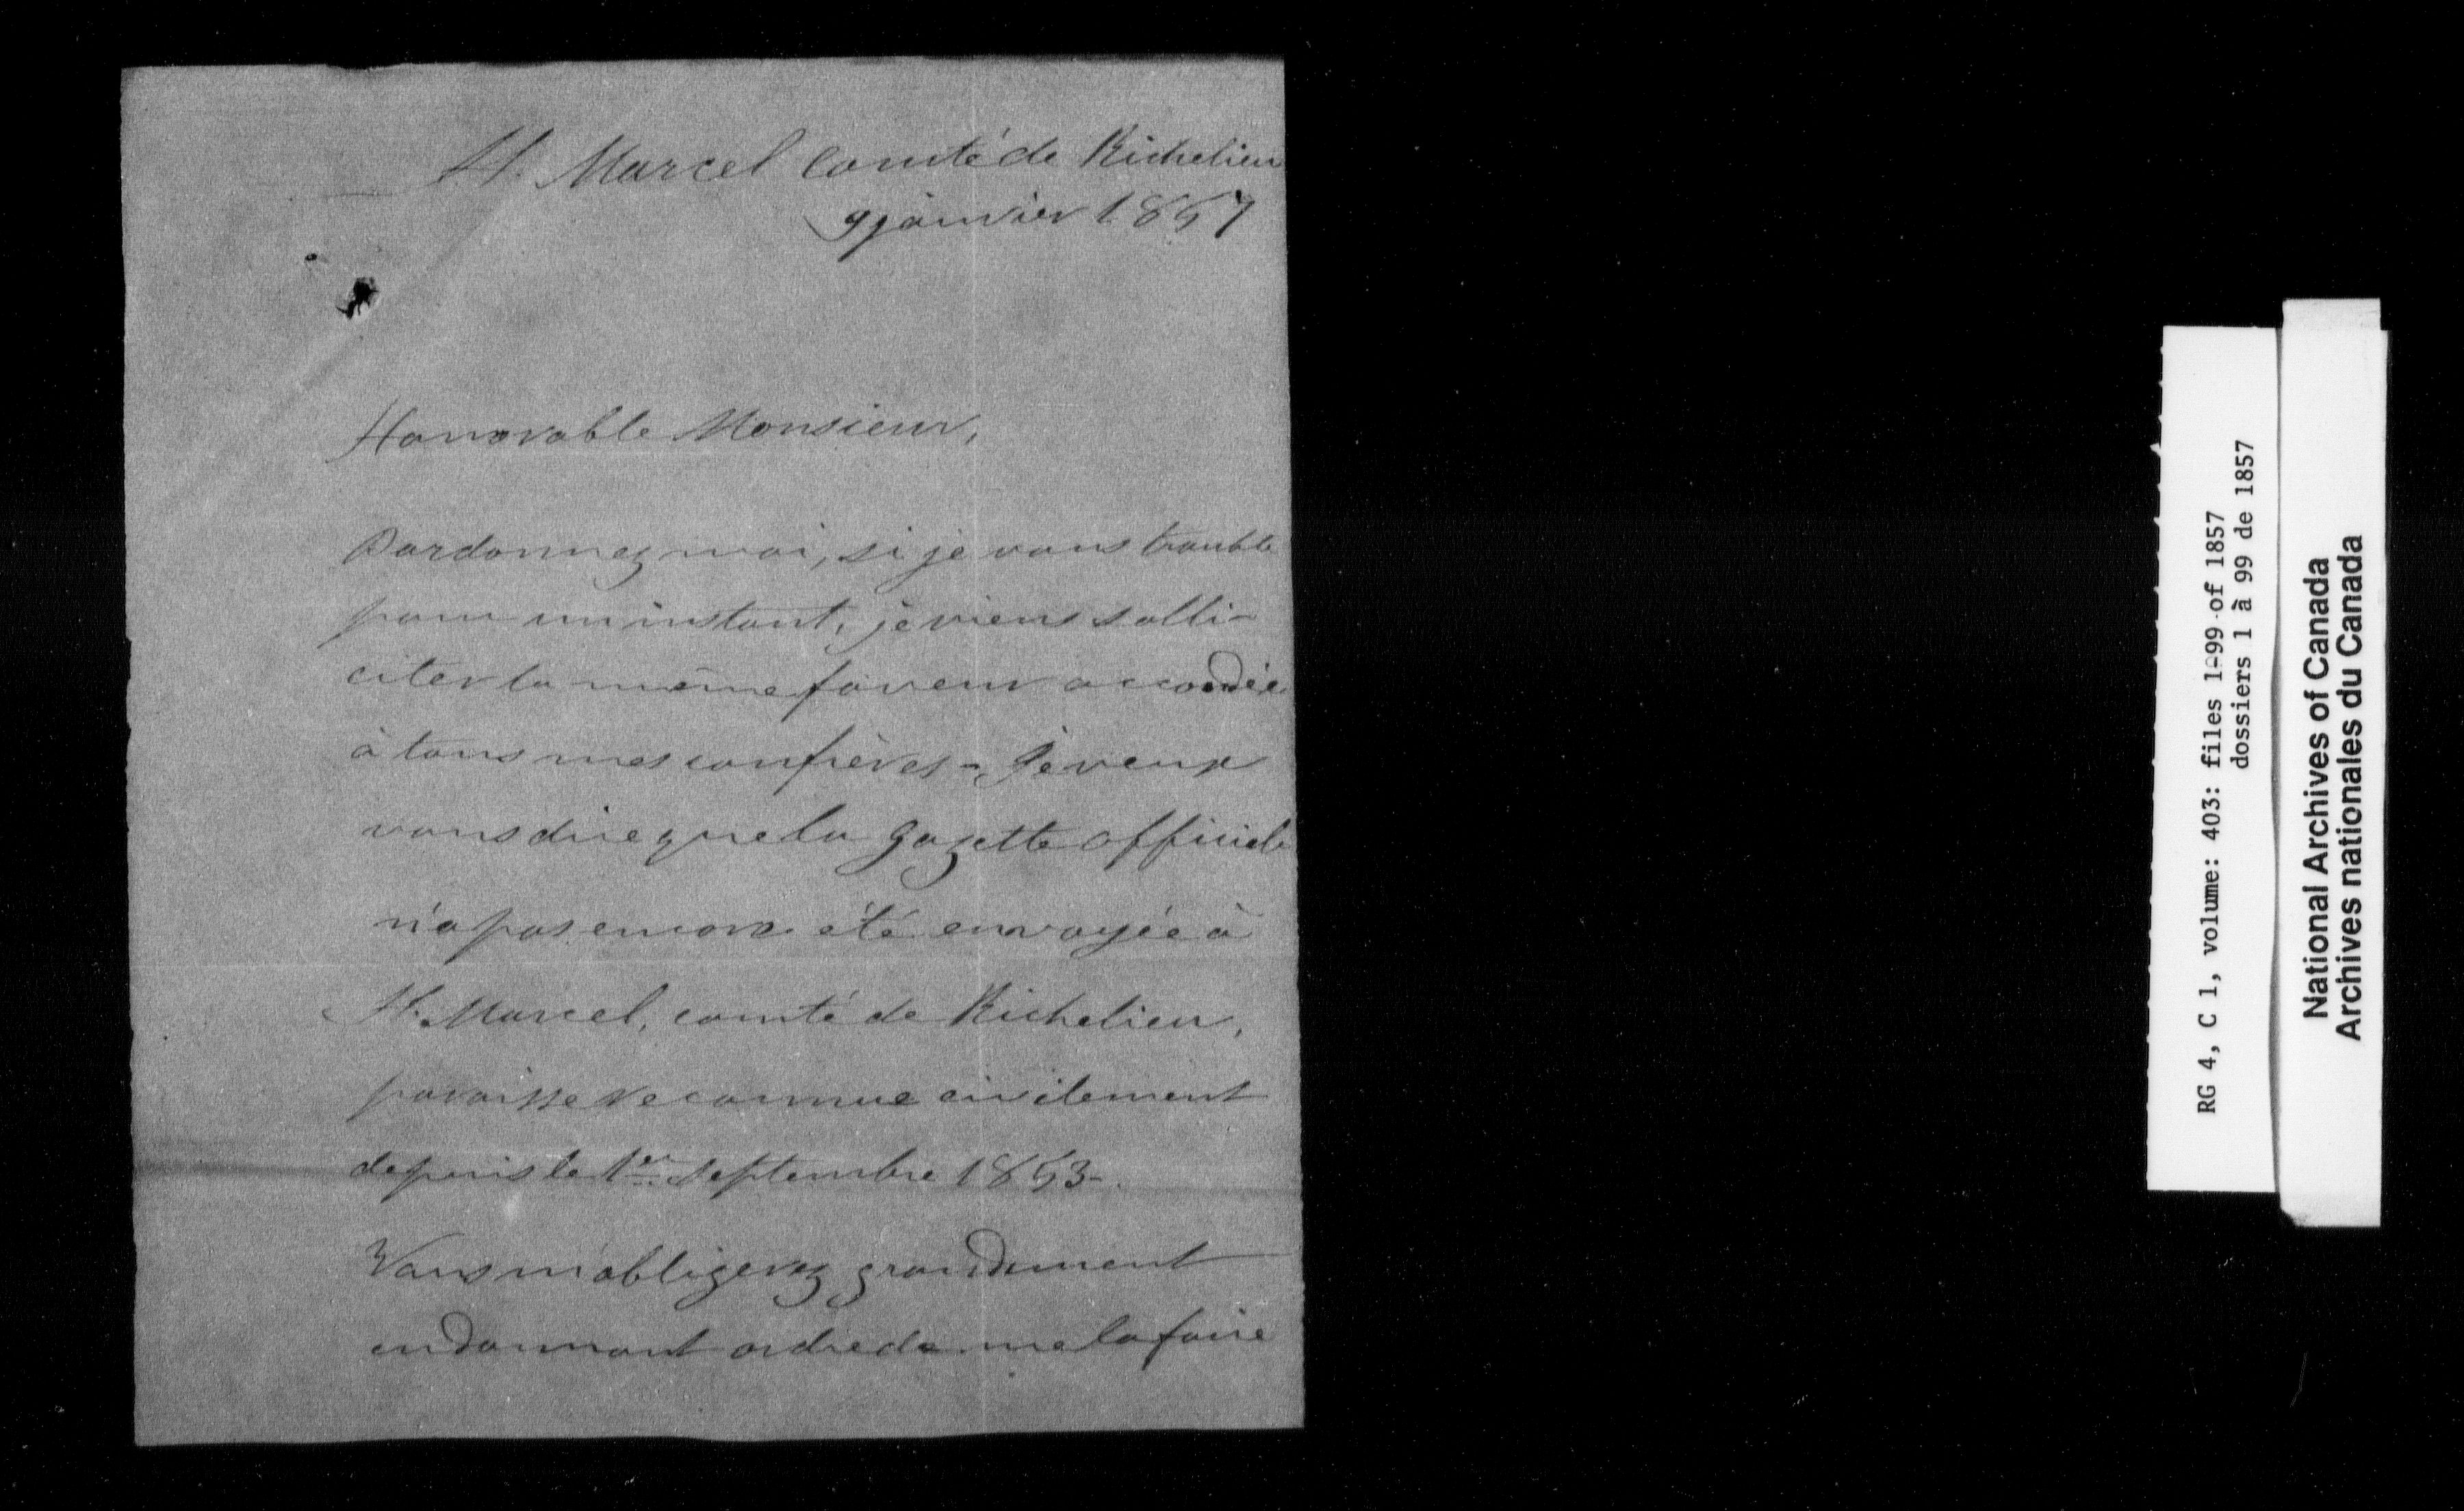 St. Marcel Comté de Richelieu
9 janvier 1857
Honorable Monsieur,
Pardonnez moi, si je vous trouble
pour un instant, je viens solli-
citer la même faveur accordée
à tous mes confrères - Je veux
vous dire que la gazette officiele
n'a pas encore été envoyée à
St. Marcel, comté de Richelieu,
paroisse reconnue civilement
depuis le 1er. Septembre 1853-.
Vous m'obligerez grandement
en donnant ordre de me la faire
RG 4, C 1, volume: 403: files 1-99 of 1857
dossiers 1 à 99 de 1857
National Archives of Canada
Archives nationales du Canada